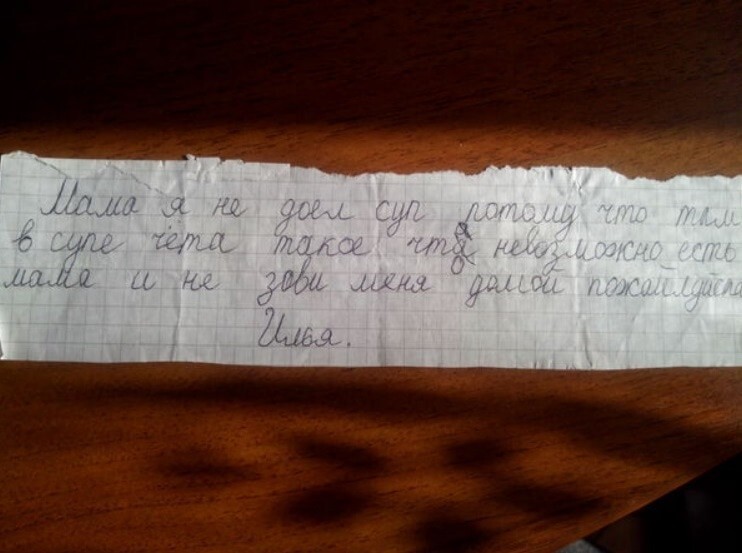 Мама я не доел суп потому что там
в супе чёта такое что невозможно есть
мама и не зови меня домой пожайлдйста
Илья.